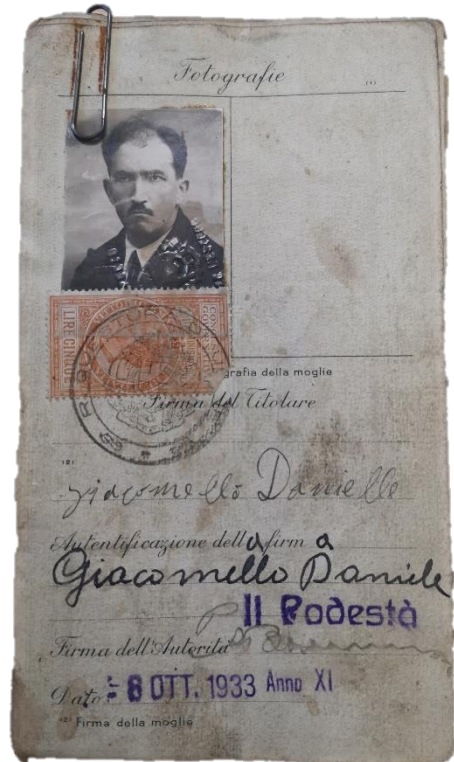 Fotografie
(1)
LIRE CINQUE
grafia della moglie
Firma del Titolare
(2)
Giacomello Danielle
Autentificazione della firma
Giacomello Daniele
Il Podestà
Firma dell'Autorità
Data = 8 OTT. 1933 Anno XI
(2) Firma della moglie